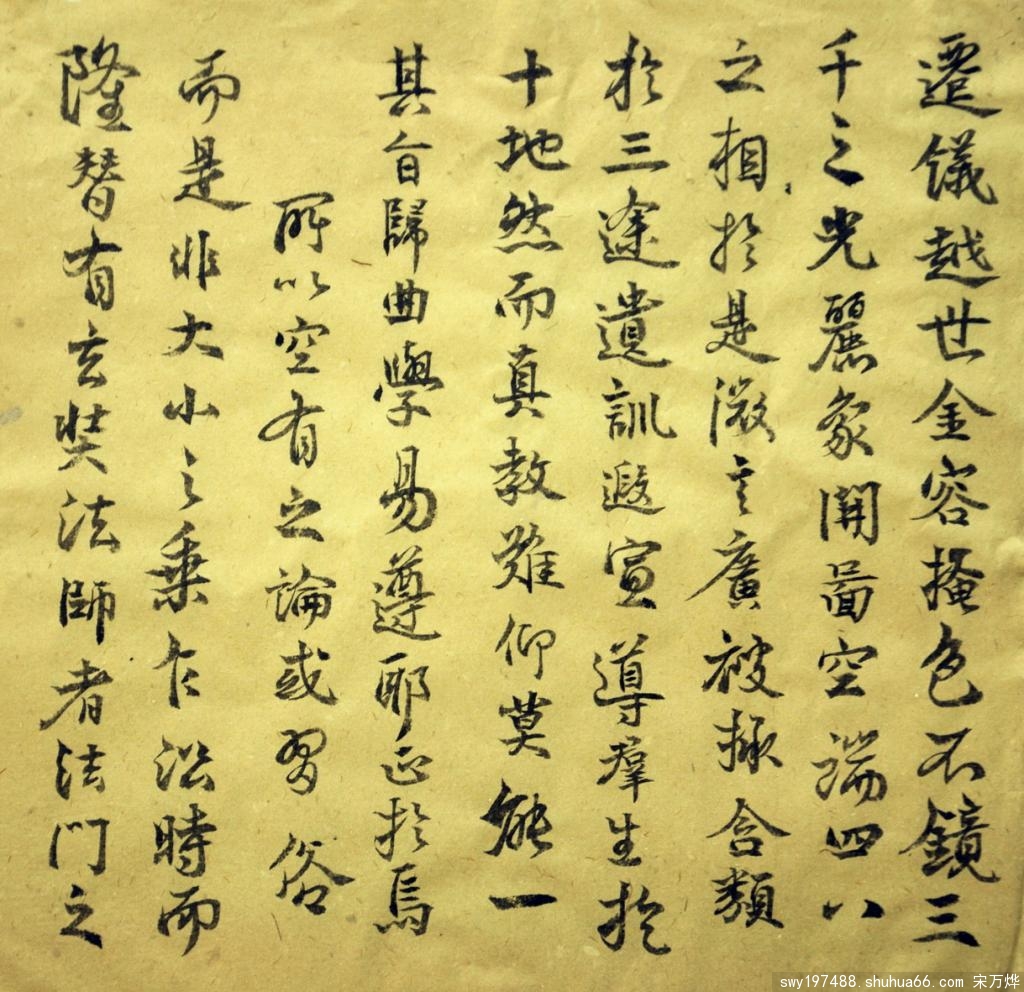 遷儀越世金容掩色不鏡三
千之光麗象開啚空端四八
之相於是微言廣被拯含類
於三途遺訓遐宣導群生於
十地然而真教難仰莫能一
其旨歸曲學易遵耶正於焉
所以空有之論或習俗
而是非大小之乗乍沿時而
隆替有玄奘法師者法門之
swy197488.shuhua66.com 宋万烨